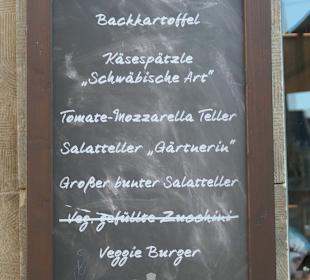 Backkartoffel
Käsespätzle
„Schwäbische Art"
Tomate-Mozzarella Teller
Salatteller „Gärtnerin"
Großer bunter Salatteller
Veg. gefüllte Zucchini
Veggie Burger